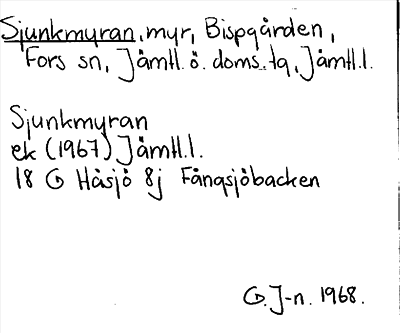 Sjunkmyran, myr, Bispgården,
Fors sn, Jämtl. ö. doms. tg, Jämtl. l.
Sjunkmyran
ek (1967) Jämtl. l.
18 G Håsjö 8j Fångsjöbacken
G. J-n. 1968.